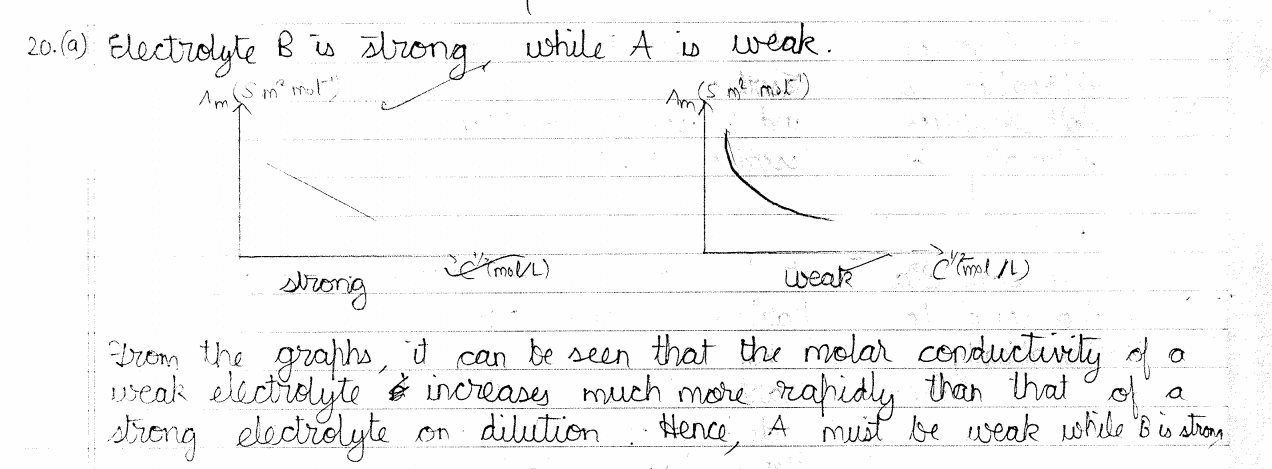 20.(a) Electrolyte B is strong, while A is weak.
Λm (S m² mol⁻¹)
Λm (S m² mol⁻¹)
C^1/2 (mol/L)
C^1/2 (mol/L)
strong
weak
From the graphs, it can be seen that the molar conductivity of a
weak electrolyte increases much more rapidly than that of a
strong electrolyte on dilution. Hence, A must be weak while B is strong